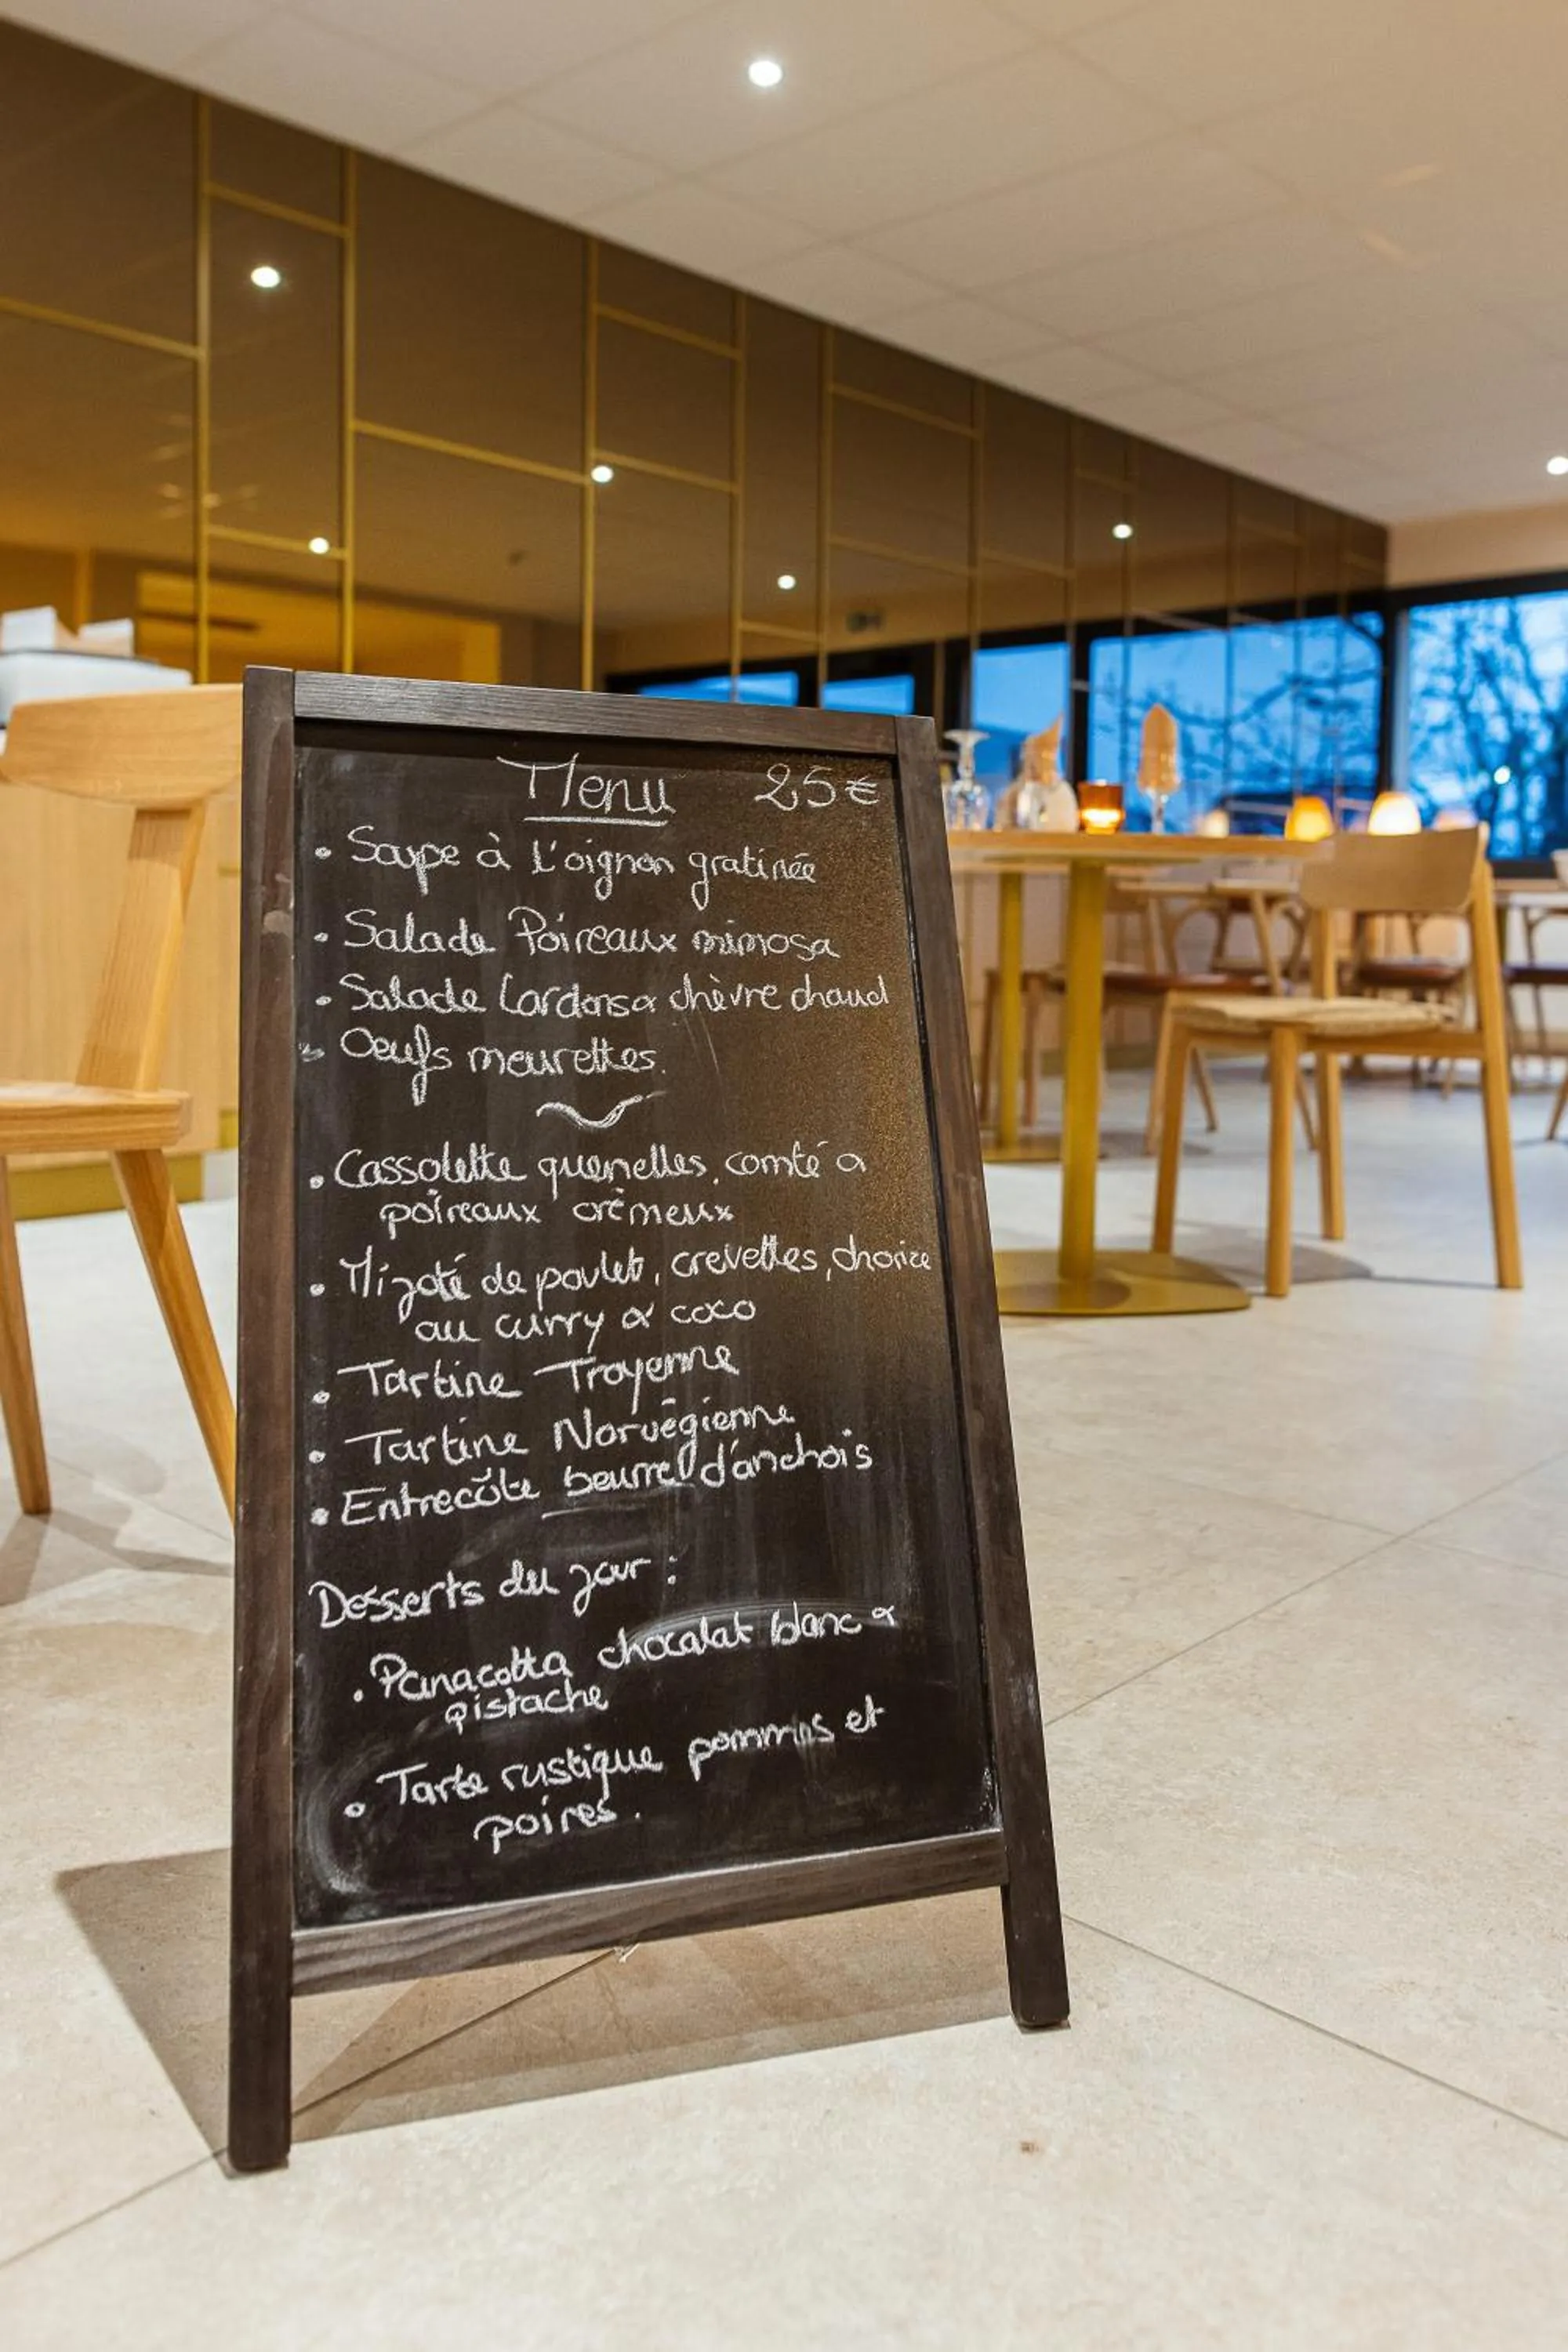 Menu 25€
• Soupe à l'oignon gratinée
• Salade Poireaux mimosa
• Salade lardons & chèvre chaud
• Oeufs meurettes.
• Cassolette quenelles, comté &
poireaux crèmeux
• Mijoté de poulet, crevettes, chorizo
au curry & coco
• Tartine Troyenne
• Tartine Norvégienne
• Entrecôte beurre d'anchois
Desserts du jour :
• Panacotta chocolat blanc &
pistache
• Tarte rustique pommes et
poires.